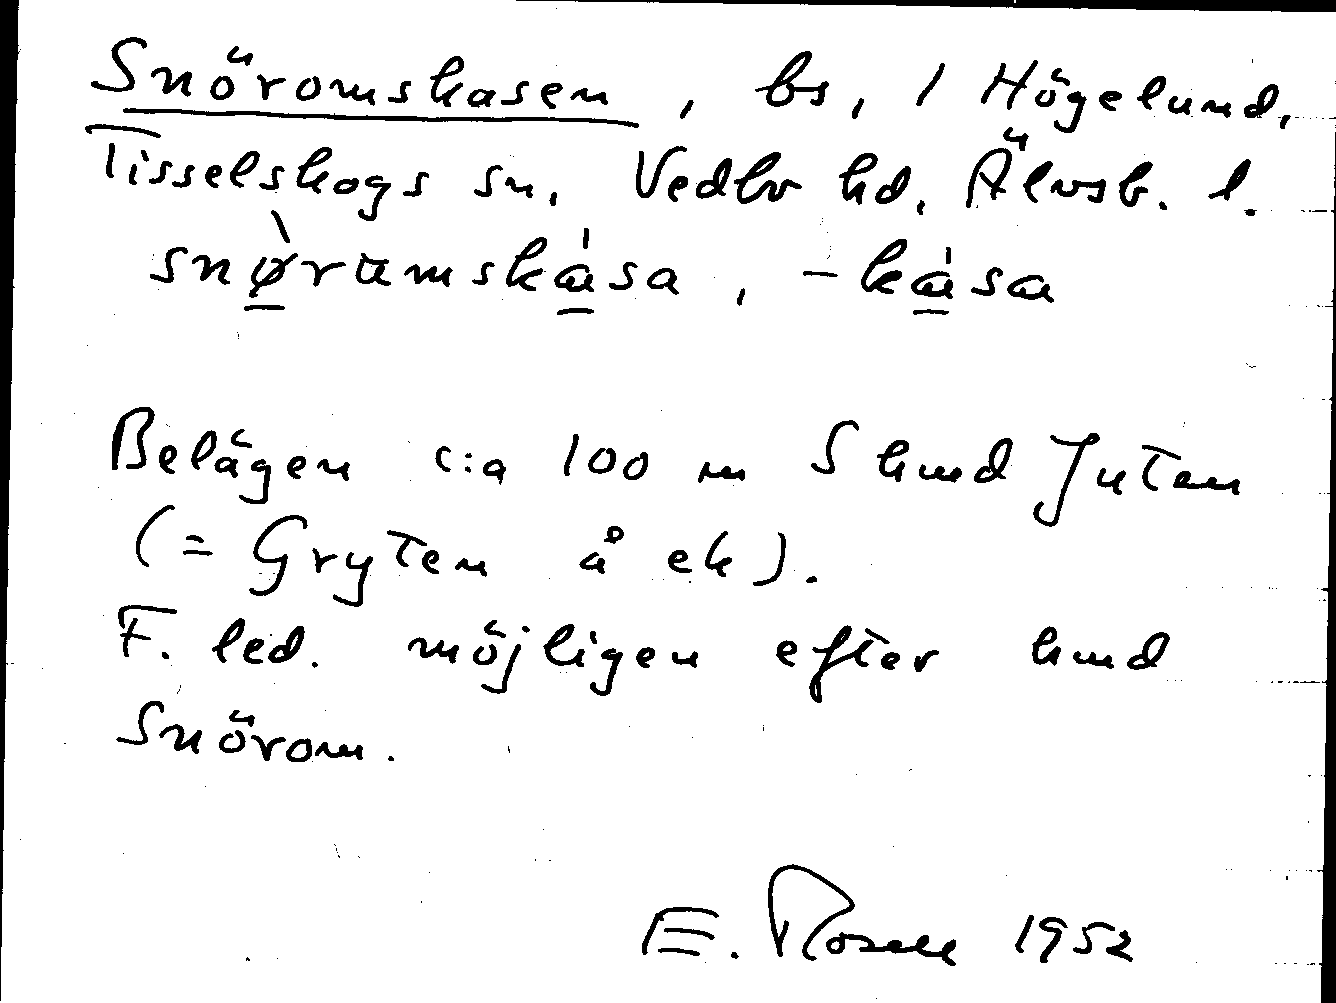 Snöromskasen, bs, 1 Högelund,
Tisselskogs sn, Vedbo hd, Älvsb. l.
snø̀ramskása, -kása
Belägen c:a 100 m S kmd Juten
(= Gryten å ek).
F. led. möjligen efter kmd
Snörom.
E. Rosell 1952